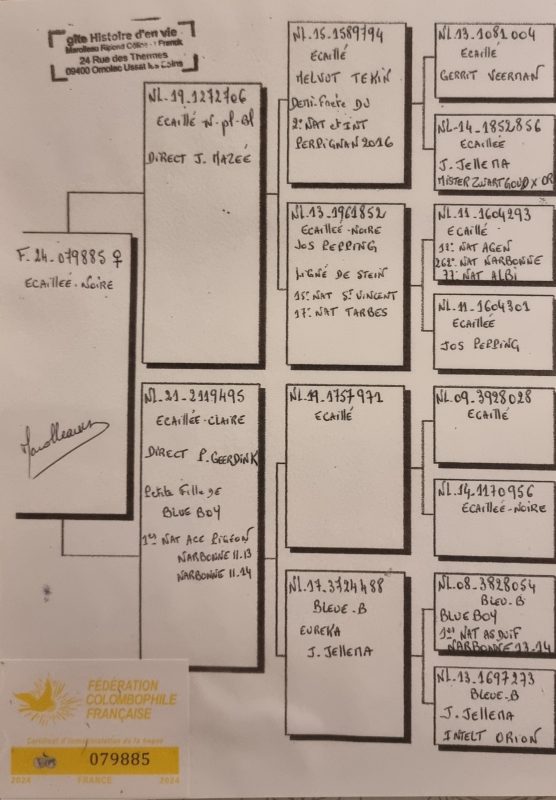 gîte Histoire d'en vie
Marolleau Ripond Céline - Franck
24 Rue des Thermes
09400 Ornolac Ussat les Bains
F. 24-079885 ♀
ECAILLÉE-NOIRE
Marolleau
NL-19-1272706
ECAILLÉ N-pl-Bl
DIRECT J. MAZEÉ
NL-21-2119495
ECAILLÉE-CLAIRE
DIRECT P. GEERDINK
Petite Fille DE
BLUE BOY
1er NAT ACE PIGEON
NARBONNE 11.13
NARBONNE 11.14
NL-15-1589794
ECAILLÉ
HELVOT TEKIN
Demi-Frère DU
2e NAT et INT
PERPIGNAN 2016
NL-13-1961852
ECAILLÉE-NOIRE
JOS PEPPING
LIGNÉ DE STEIN
15e NAT St VINCENT
17e NAT TARBES
NL-19-1757971
ECAILLÉ
NL-17-3724488
BLEUE-B
EUREKA
J. JELLEMA
NL-13-1081004
ECAILLÉ
GERRIT VEERMAN
NL-14-1852856
ECAILLÉE
J. JELLEMA
MISTER ZWARTGOUD X OR
NL-11-1604293
ECAILLÉ
NAT AGEN
262e NAT NARBONNE
77e NAT ALBI
NL-11-1604301
ECAILLÉE
JOS PEPPING
NL-09-3928028
ECAILLÉ
NL-14-1170956
ECAILLÉE-NOIRE
NL-08-3828054
BLEU-B
BLUE BOY
1er NAT AS DUIF
NARBONNE 13-14
NL-13-1697273
BLEUE-B
J. JELLEMA
INTELT ORION
FÉDÉRATION
COLOMBOPHILE
FRANÇAISE
Certificat d'immatriculation de la bague
079885
2024 FRANCE 2024